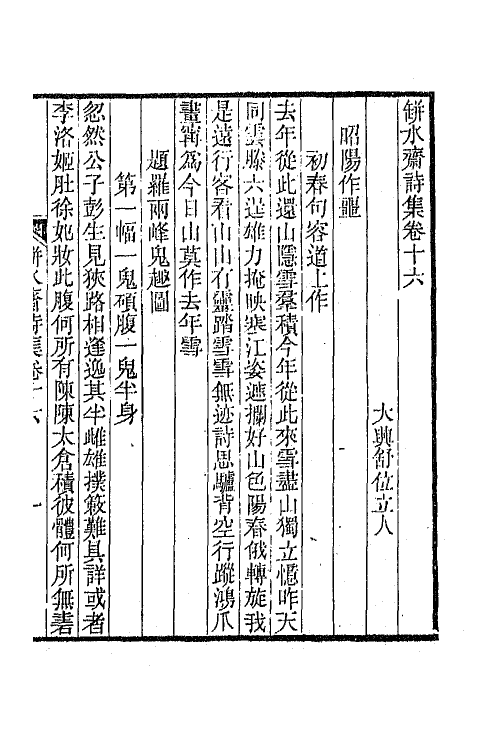 缾水齋詩集卷十六
大興舒位立人
昭陽作噩
初春句容道上作
去年從此還山隱雪羣積今年從此來雪盡山獨立憶昨天
同雲滕六逞雄力掩映寒江姿遮攔好山色陽春俄轉旋我
是遠行客看山山有靈踏雪雪無迹詩思驢背空行蹤鴻爪
畫甯爲今日山莫作去年雪
題羅兩峰鬼趣圖
第一幅一鬼碩腹一鬼半身
忽然公子彭生見狹路相逢逸其半雌雄撲簌難具詳或者
李洛姬肚徐妃妝此腹何所有陳陳太倉積彼體何所無書
缾水齋詩集卷十六
一